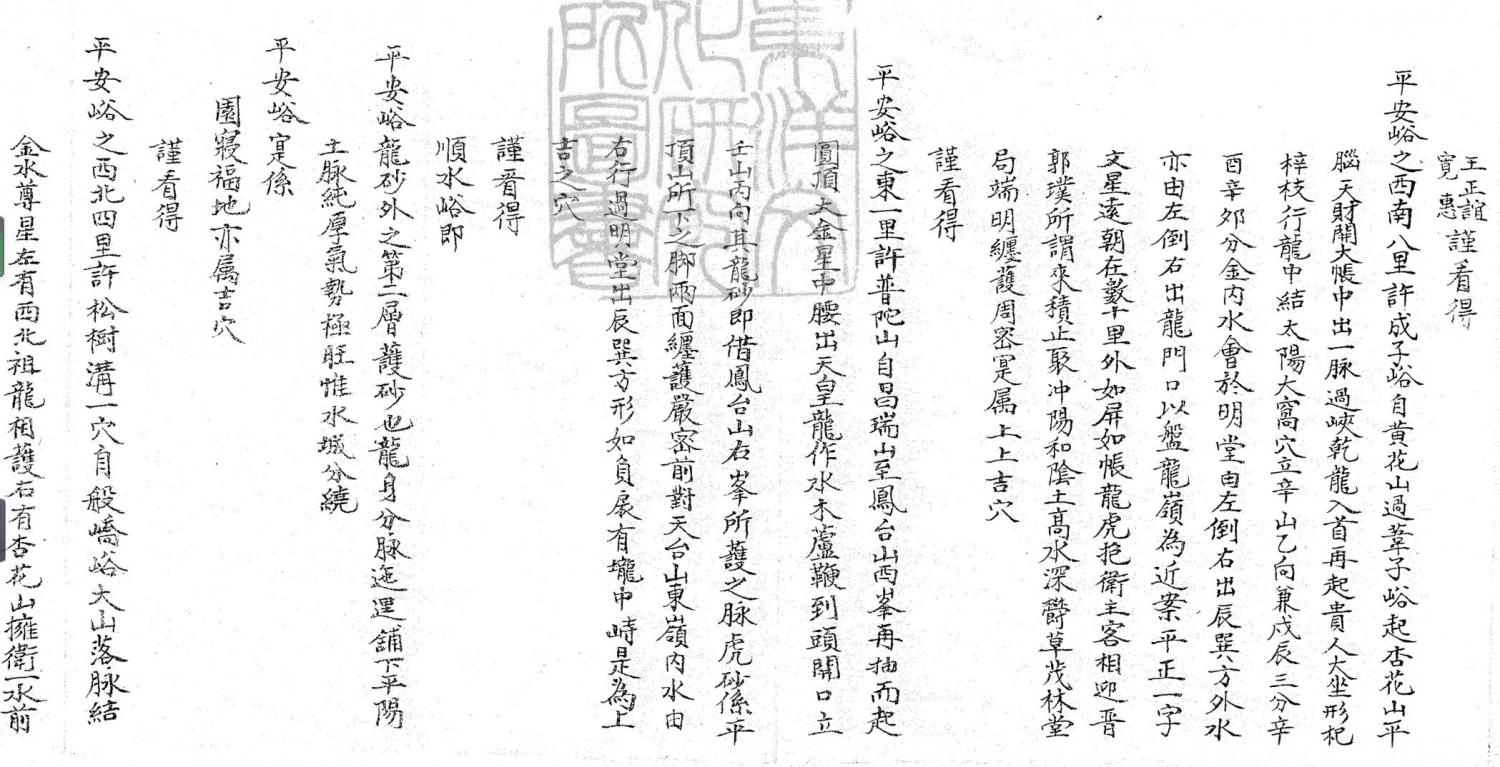 王正誼
寛惠 謹看得
平安峪之西南八里許成子峪自黄花山過葦子峪起杏花山平
腦天財開大帳中出一脉過峽乾龍入首再起貴人大坐形杞
梓枝行龍中結太陽大窩穴立辛山乙向兼戌辰三分辛
酉辛卯分金内水會於明堂由左倒右出辰巽方外水
亦由左倒右出龍門口以盤龍嶺為近案平正一字
文星遠朝在數十里外如屏如帳龍虎抱衛主客相迎晋
郭璞所謂來積止聚冲陽和陰土髙水深欝草茂林堂
局端明纏護周密寔属上上吉穴
謹看得
平安峪之東一里許普陀山自昌瑞山至鳳台山西峯再抽而起
圓頂大金星中腰出天皇龍作水木蘆鞭到頭開口立
壬山丙向其龍砂即借鳳台山右峯所護之脉虎砂係平
頂山所下之脚兩面纏護嚴密前對天台山東嶺内水由
右行過明堂出辰巽方形如負扆有壠中峙是為上
吉之穴
謹看得
順水峪即
平安峪龍砂外之第二層護砂也龍身分脉迤邐舖下平陽
土脉純厚氣勢極旺惟水城分繞
平安峪寔係
園寢福地亦属吉穴
謹看得
平安峪之西北四里許松樹溝一穴自般嶠峪大山落脉結
金水尊星左有西北祖龍相護右有杏花山擁衛一水前